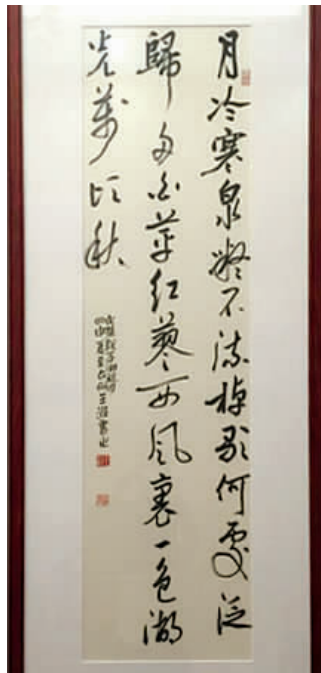 月冷寒泉凝不流棹歌何處泛
歸舟白苹红蓼西風裏一色湖
光萬頃秋